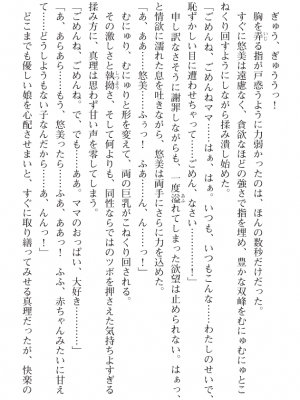 ぎゅう、ぎゅううっ！
胸を弄る指が戸惑うように力弱かったのは、ほんの数秒だけだった。
すぐに悠美は遠慮なく、貪欲なほどの強さで指を埋め、豊かな双峰をむにゅむにゅとこ
ねくり回すようにしながら揉み潰し始めた。
「ごめんね、ごめんねママ……はぁ、はぁ。いつも、いつもこんな……わたしのせいで、
恥ずかしい目に遭わせちゃって……ごめん、なさい……！」
申し訳なさそうに謝罪しながらも、一度溢れてしまった欲望は止められない。はぁっ、
と情欲に濡れた息を吐きながら、悠美は両手にさらに力を込めた。
「あ、ああ……悠美……ふぅっ！　ふぁ、んん……っ！」
むにゅり、むにゅりと形を変えて、両の巨乳がこねくり回される。
その激しさと執拗さ、そして何よりも、同性ならではのツボを押さえた気持ちよすぎる
揉み方に、真理は思わず甘い声を零してしまう。
「ごめんね、ごめんね、で、でも……ああ、ママのおっぱい、大好き……」
「あ、あらあら……もう、悠美ったら……ふぁ、ああっ！　ふふ、赤ちゃんみたいに甘え
て……どうしようもない子なんだから……あ、んんっ！」
どこまでも優しい娘を心配させまいと、すぐに取り繕ってみせる真理だったが、快楽の